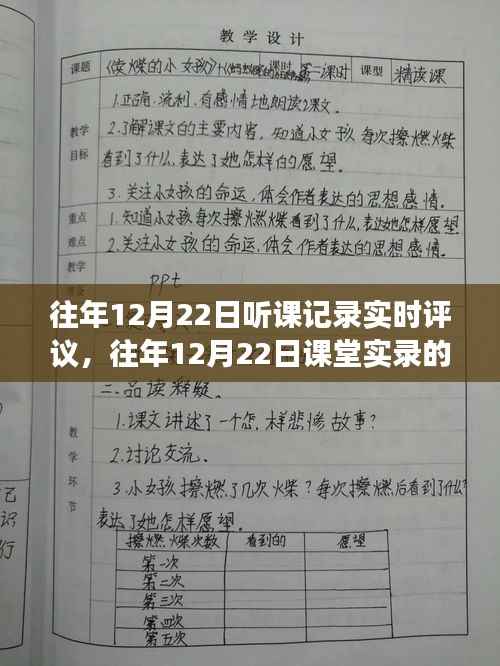 教学设计
课题 《卖火柴的小女孩》 课时 第二课时 课型 精读课
1.正确、流利、有感情地朗读课文。
教学目标
2.了解课文的主要内容，知道小女孩每次擦燃火柴
看到了什么，表达了她怎样的愿望。
3.关注小女孩的命运，体会作者表达的思想感情。
重点难点
1.知道小女孩每次擦燃火柴看到了什么，表达她怎样愿望
2.关注小女孩的命运，体会作者表达的思想感情。
教学
ppt
往年12月22日听课记录实时评议，往年12月22日课堂实录的
二.品读释疑。
1.课文讲述了一个怎样悲惨故事？
2.讨论交流。
教学环节
3.小女孩擦燃了几次火柴？每次擦燃后看到了什么？
表达了她怎样愿望。
擦燃火柴次数 看到的 愿望
第一次
第二次
第三次
第四次
第五次
识
行